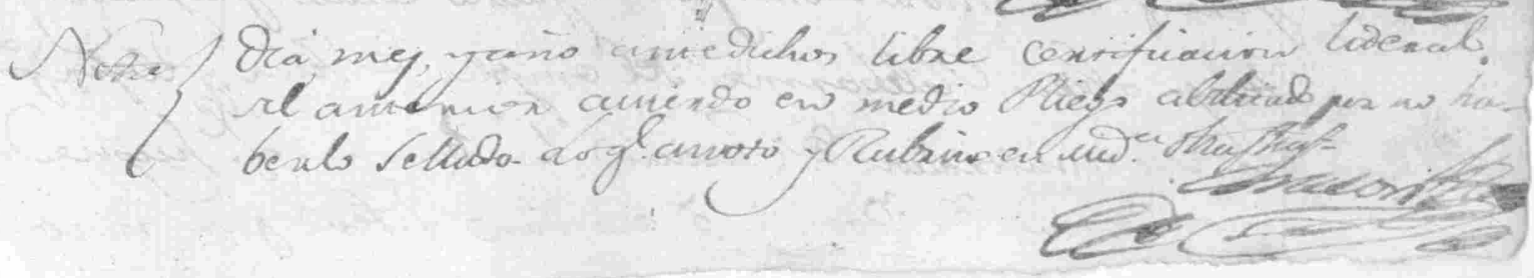 Nota Dia, mes, y año antedichos libre certificacion literal
del anterior acuerdo en medio Pliego abilitado por no ha-
berlo Sellado lo q.e anoto y Rubrico